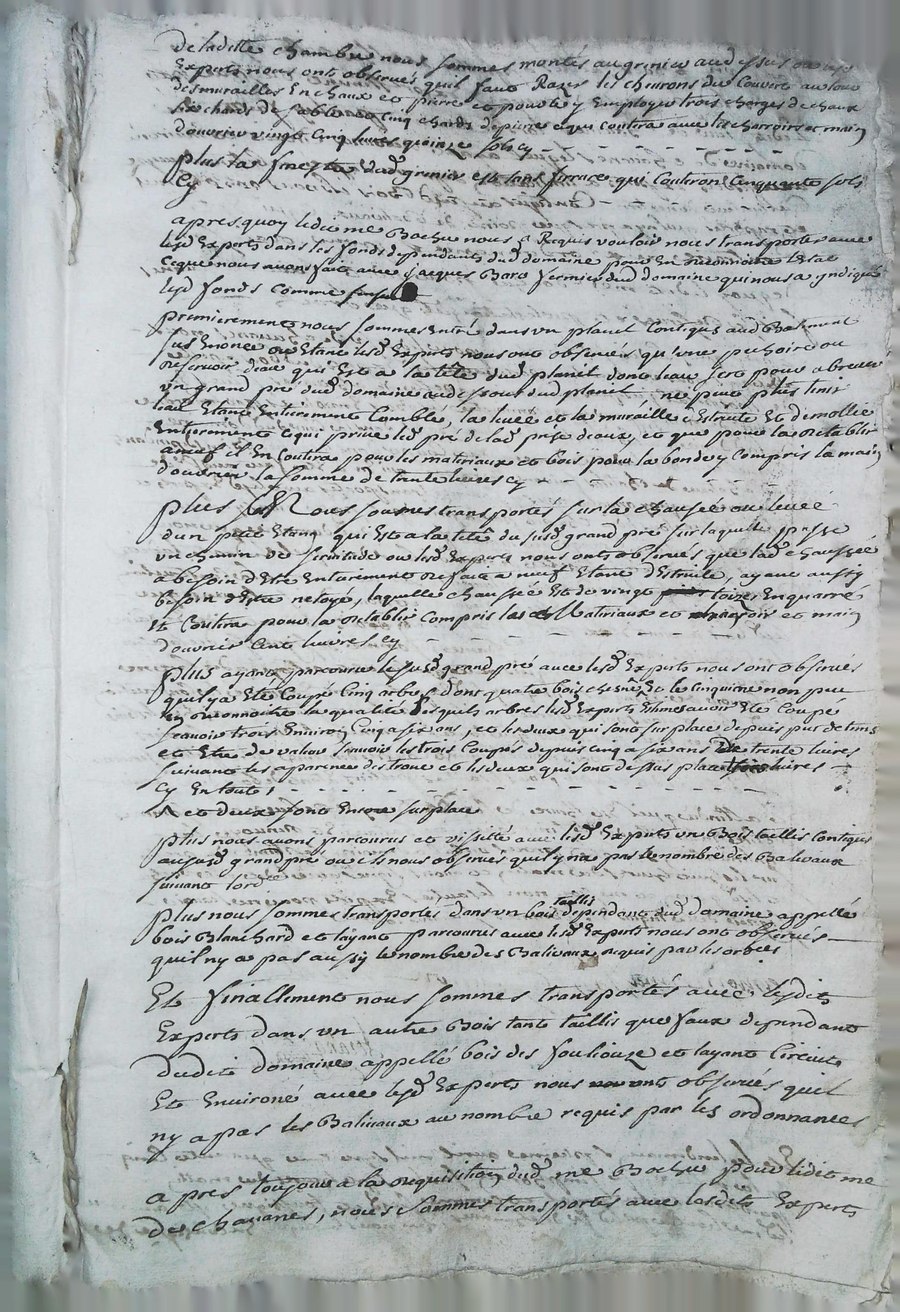 de laditte chambre nous sommes montés au grenier au dessus ou lesd
Experts nous ont observés quil faut Razer les cheurons du Couvert au tour
des murailles En chaux et pierre et pour ce y Employer trois charges de chaux
six chards de sable et Cinq chards de pierre ce qui coutira avec les charroirs et main
douvrier vingt Cinq livres quinze sols Cy - - - - - - -
plus la fineztre dud grenier est sans ferrure qui Coutiron Cinquante sols
Cy
apres quoy ledit me Bochu nous a Requis vouloir nous transporter avec
lesd Experts dans les fonds dependants dud domaine pour En reconnoitre letat
Ceque nous avons fait avec jacques Baro fermier dud domaine qui nous a yndiqué
lesd fonds comme
premierement nous sommes Entré dans un planel Contigue aud Batiment
sus Enoncé ou Etant lesd Experts nous ont observés qu'une puhoire ou
reservoir deau qui Est a la tête dud planel dont leau sert pour abreuer
un grand pré dud domaine au dessous dud planel, ne peut plus tenir
leau Etant Entierement Comblé, la levée et la muraille Estruite Et demollie
Entierement ce qui prive led pré de lad prise deaux, et que pour la retablir
a neuf il En Coutira pour les matriaux et bois pour la bonde y compris la main
douvrier la somme de trente livres Cy - - - - - - -
plus Nous sommes transportés sur la chausée ou levée
dun petit Etang qui Est a la tête du susd grand pré sur laquelle passe
un chemin de servitude ou lesd Experts nous ont observés que lad chaussée
a besoin d'Etre Entierement refaite a neuf Etant d'Estruite, ayant aussy
besoin d'Etre netoyé, laquelle chaussée Est de vingt toizes En quarré
Et Coutira pour la retablir Compris les Matriaux et et main
d'ouvrier Cent livres Cy - - - - - - -
plus ayant parcouru le susd grand pré avec lesd Experts nous ont observés
quil y a Eté Coupé Cinq arbres dont quatre bois chesne Et le Cinquieme non peu
reconnoitre la qualité Lesquels arbres lesd Experts Estime avoir Eté Coupé
scavoir trois Environ Cinq a six ans, et les deux qui sont sur place depuis peu de tems
et Etre de valeur scavoir les trois Coupés depuis cinq a six ans de trente livres
suivant les aparence des tronc et les deux qui sont de plus place livres
Cy En tout; - - - - - - -
et deux sont Encore sur place
plus nous avons parcourus et vissitté avec lesd Experts un Bois taillis Contigue
au susd grand pré ou ils nous observés quil y na pas le nombre des Baliveaux
suivant lord
plus nous sommes transportes dans un bois taillis dependant dud domaine appellé
bois Blanchard et layant parcourus avec lesd Experts nous ont observés
quil ny a pas aussy le nombre des Baliveaux requis par les ordces
Et finallement nous sommes transportés avec lesdits
Experts dans un autre Bois tant taillis que faux dependant
dudit domaine appellé bois des foulouze et layant Circuit
Et Environé avec lesd Experts nous ont observés quil
ny a pas les Baliveaux au nombre requis par les ordonnances
apres toujours a la requisition dud me Bochu pour ledit me
de chavanes, nous sommes transportés avec lesdits Experts